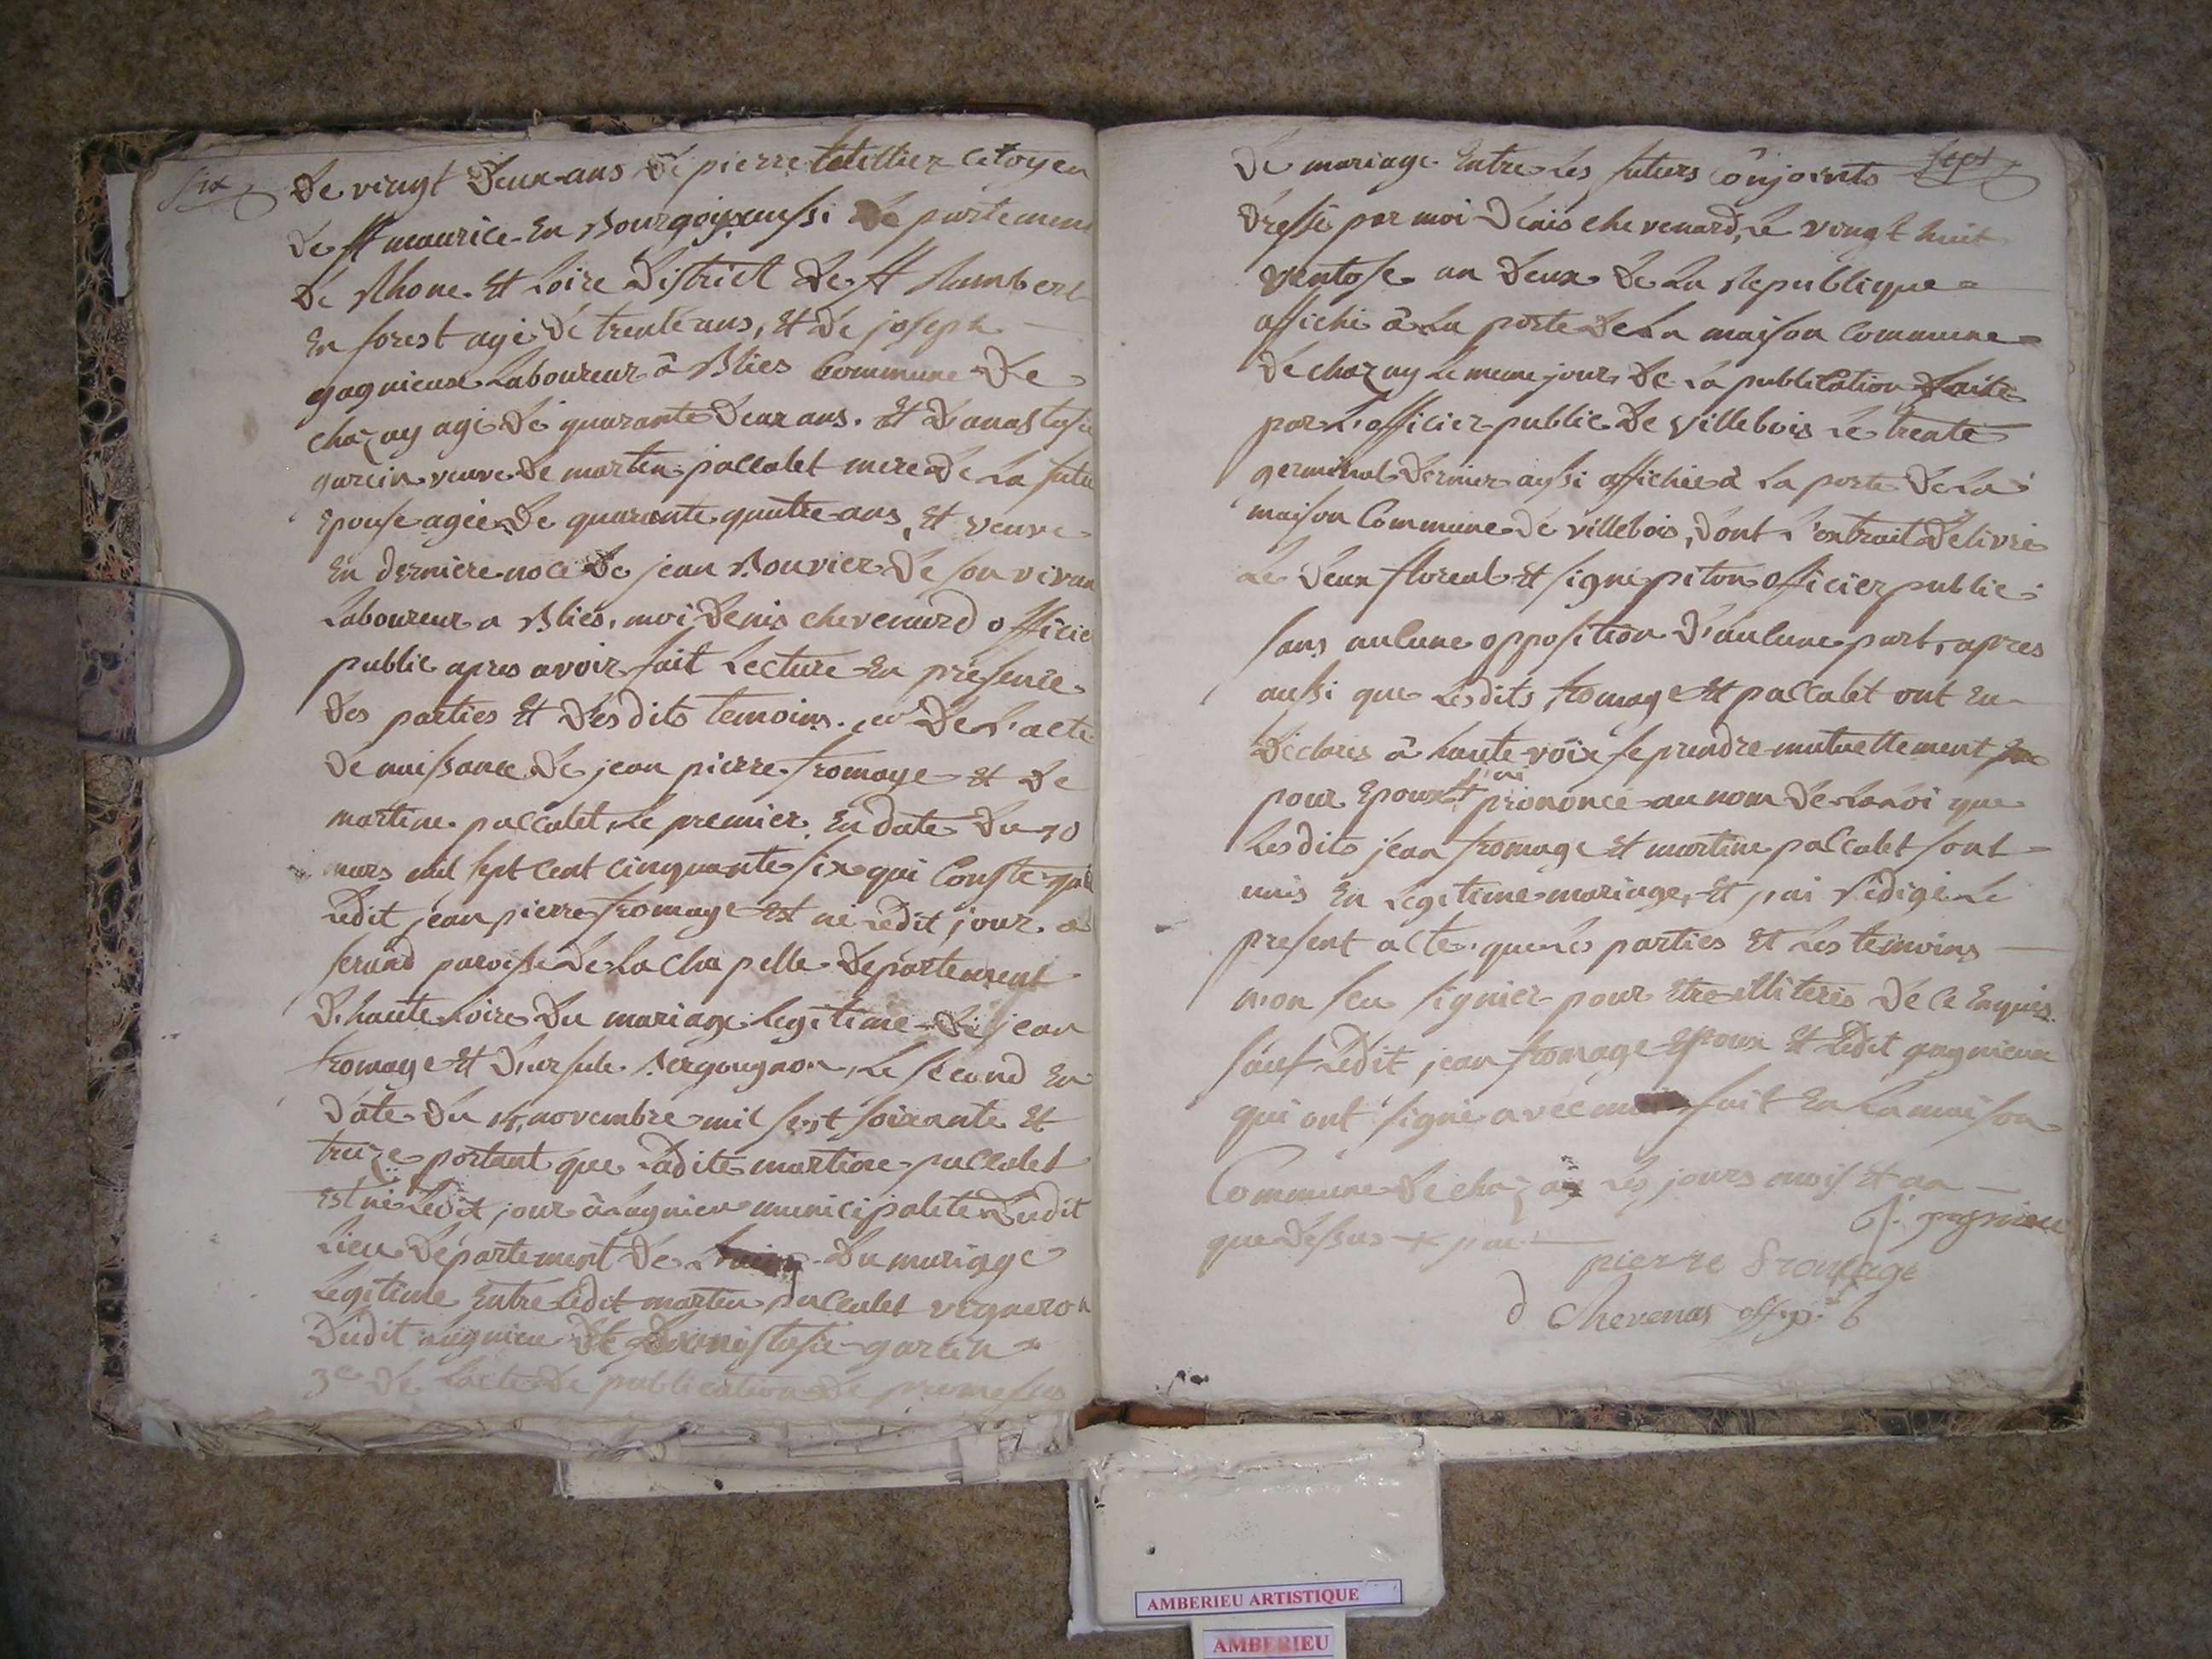 six
de vingt deux ans de pierre letellier citoyen
de st maurice en Bourgoix aussi departement
de Rhone Et Loire District de st Rambert
En forest agé de trente ans, Et de joseph
gagnieux Laboureur à Blies Commune de
chazay agé de quarante deux ans. Et d'anastasie
garcin veuve de martin paccalet mere de La futu
Epouse agée de quarante quatre ans, Et veuve
En derniere noce de jean Bouvier de son vivan
Laboureur a Bliés, moi denis chevenard officie
public apres avoir fait Lecture En présence
des parties Et desdits temoins. de L'acte
de naissance de jean pierre fromage Et de
martine paccalet, Le premier En date du 10
mars mil sept cent cinquante six qui Conste que
Ledit jean pierre fromage Est né Ledit jour a
ferand paroisse de La chapelle departement
d'haute Loire du mariage legitime de jean
fromage Et d'ursule Vergougnon, Le second En
date du 15 novembre mil sept soixante Et
treize portant que Ladite martine paccalet
Est né Ledit jour à Lagnieu municipalité dudit
Lieu departement de L'ain du mariage
Legitime Entre Ledit martin paccalet vigneron
dudit Lagnieu Et d'anastasie garcin
3e de L'acte de publication de promesses
sept
de mariage Entre Les futurs Conjoints
dressé par moi denis chevenard, Le vingt huit
ventose an deux de La Republique
affiché à La porte de La maison Commune
de chazay Le meme jour, de La publication faite
par L'officier public de villebois Le trente
germinal dernier aussi affichée à La porte de La
maison Commune de villebois, dont L'extrait délivré
Le deux floreal Et signé piton officier public
sans aulcune opposition d'aulcune part, apres
aussi que Lesdits fromage Et paccalet ont Eu
déclarés à haute voix se prendre mutuellement
pour Epoux j'ai prononcé au nom de La Loi que
Lesdits jean fromage Et martine paccalet sont
unis En Legitime mariage, Et j'ai Redigé Le
present acte. que Les parties Et Les témoins
n'on seu signier pour Etre illiterés de ce Enquis
sauf Ledit jean fromage Epoux Et Ledit gagnieux
qui ont signé avec moi fait En La maison
Commune de chazay Les jours mois Et an
que dessus
J. gagnieu
pierre fromage
d Chevenar off. p.
AMBERIEU ARTISTIQUE
AMBERIEU